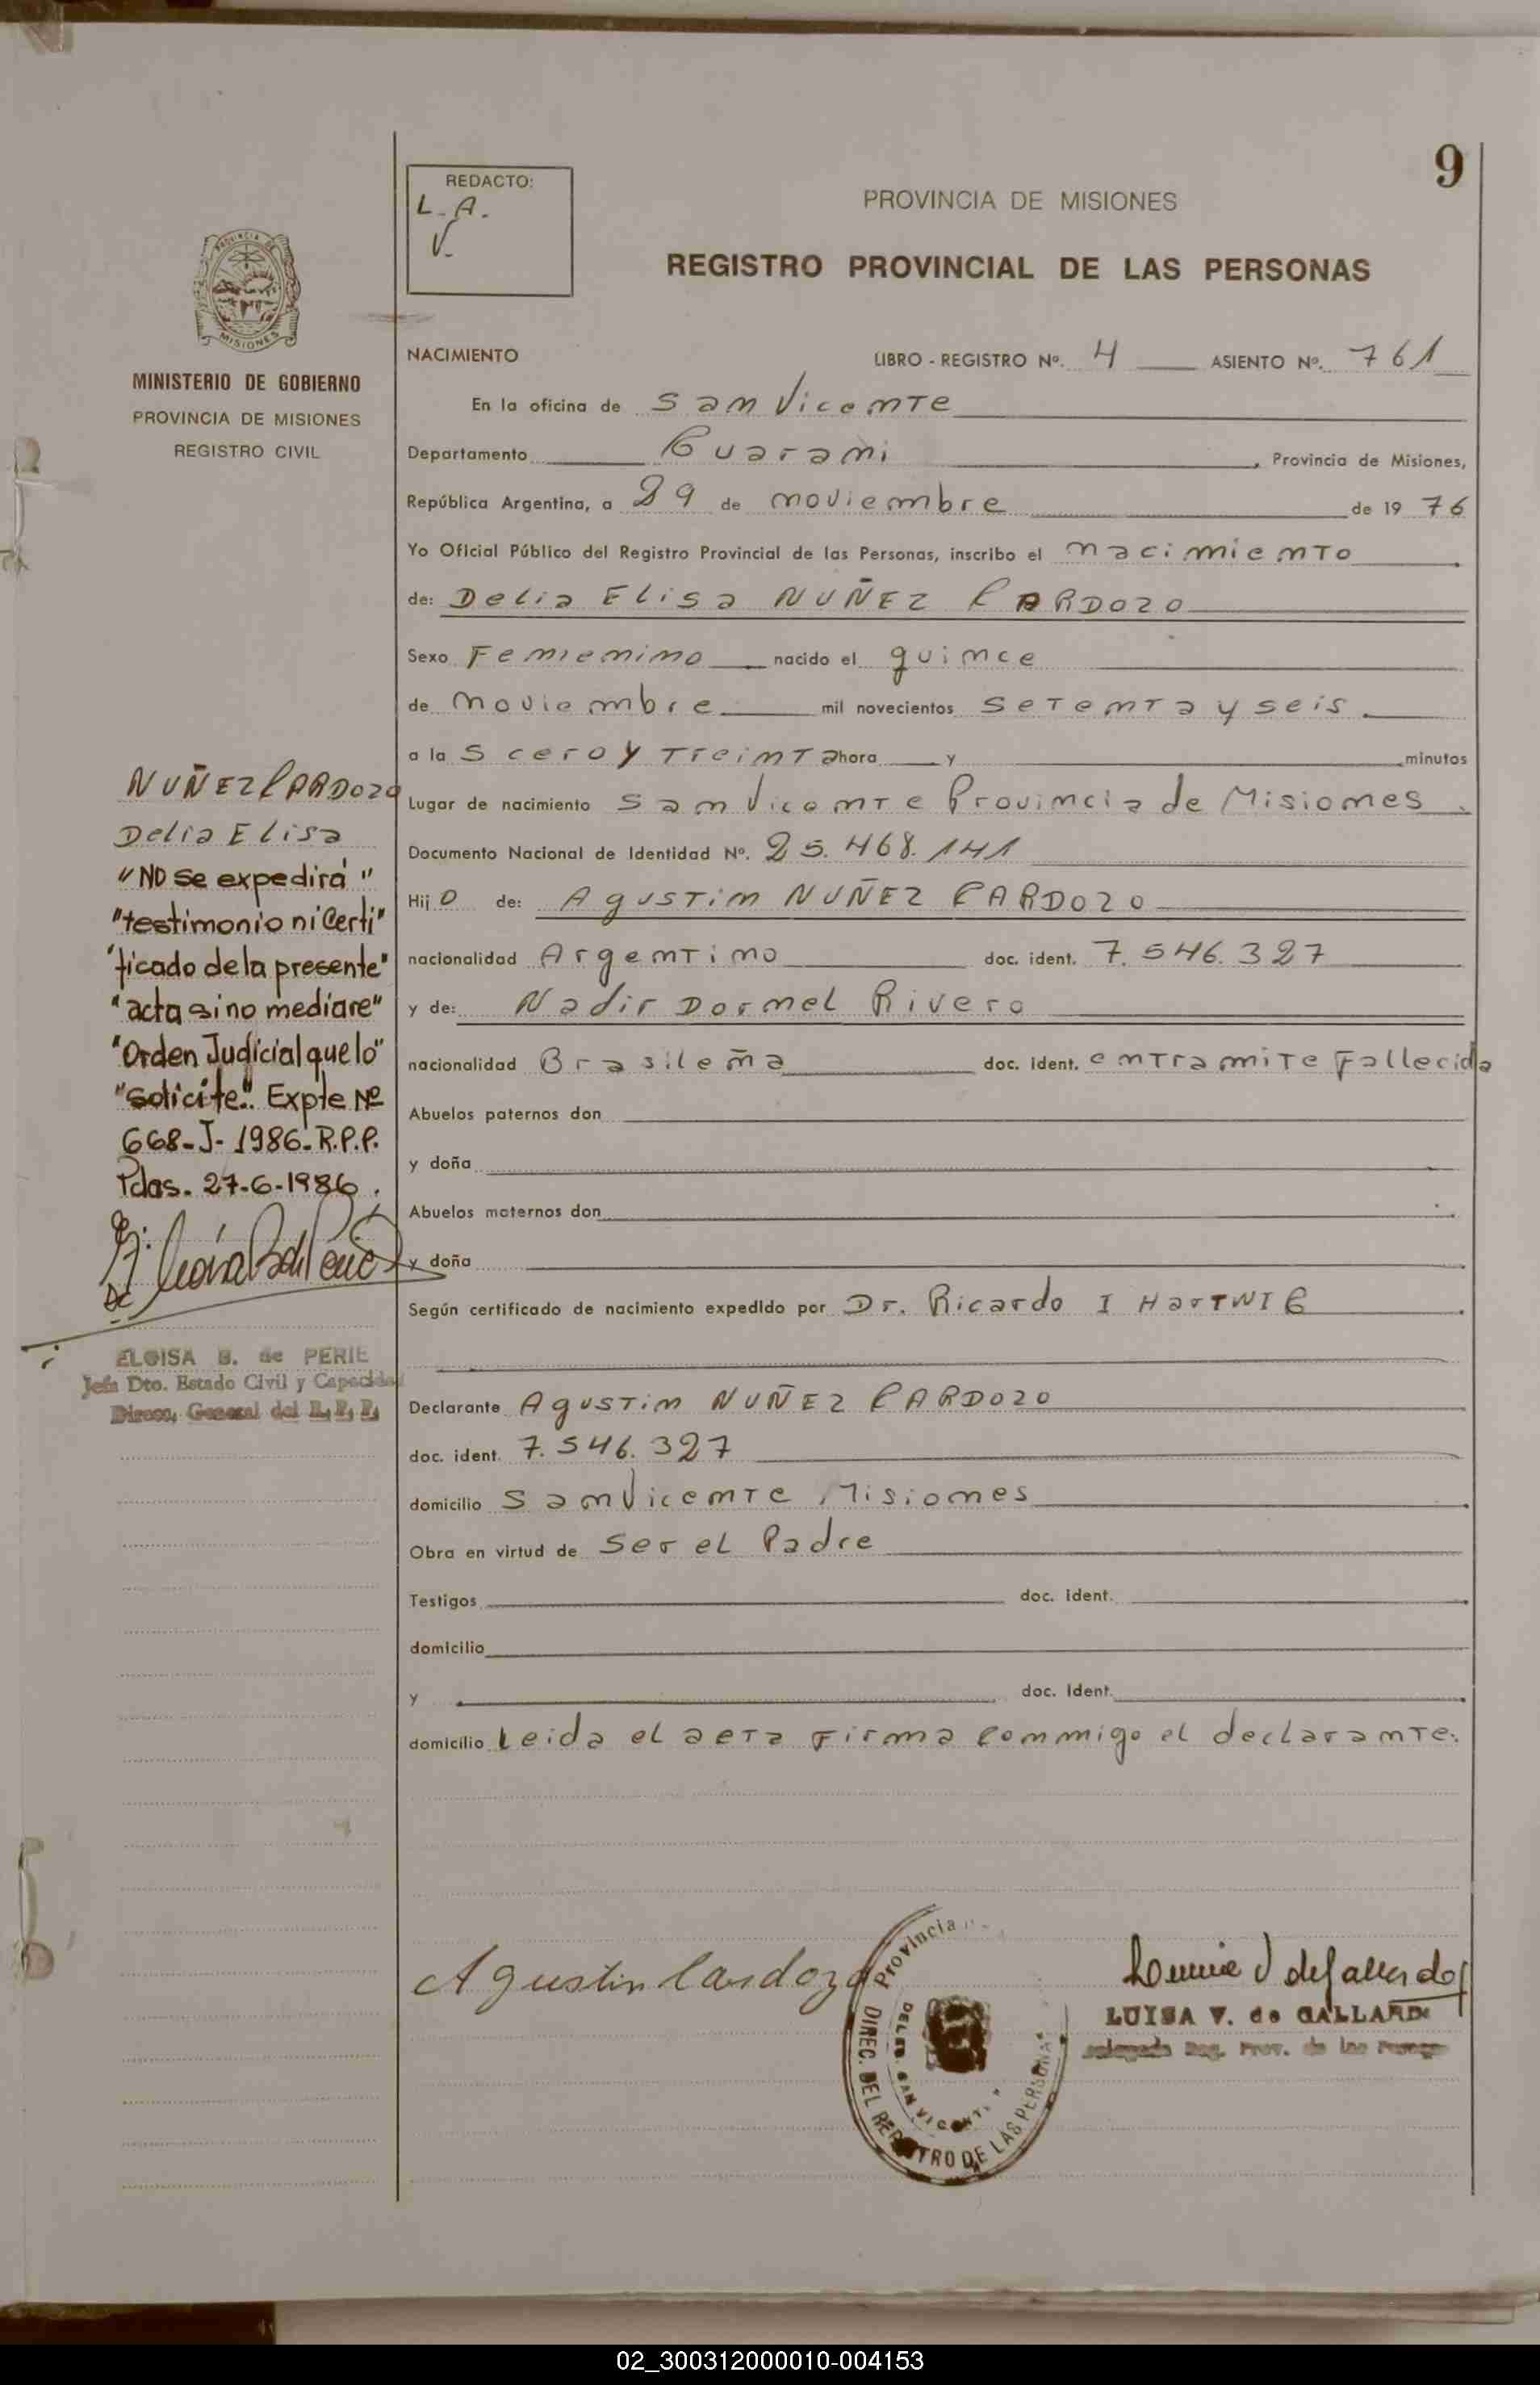 9
REDACTO:
L. A.
V.
PROVINCIA DE MISIONES
REGISTRO PROVINCIAL DE LAS PERSONAS
PROVINCIA DE
MISIONES
MINISTERIO DE GOBIERNO
PROVINCIA DE MISIONES
REGISTRO CIVIL
NACIMIENTO LIBRO - REGISTRO Nº. 4 ASIENTO Nº. 761
En la oficina de San Vicente
Departamento Guarani, Provincia de Misiones,
República Argentina, a 29 de noviembre de 1976
Yo Oficial Público del Registro Provincial de las Personas, inscribo el nacimiento
de: Delia Elisa NUÑEZ CARDOZO
Sexo Femenino nacido el quince
de noviembre mil novecientos setenta y seis.
a las cero y treinta hora y minutos
Lugar de nacimiento San Vicente Provincia de Misiones.
Documento Nacional de Identidad Nº. 25.468.141
Hijo de: Agustin NUÑEZ CARDOZO
nacionalidad Argentino doc. ident. 7.546.327
y de: Nadir Dornel Rivero
nacionalidad Brasileña doc. ident. en tramite Fallecida
Abuelos paternos don
y doña
Abuelos maternos don
y doña
Según certificado de nacimiento expedido por Dr. Ricardo I HarTWIG
Declarante Agustin NUÑEZ CARDOZO
doc. ident. 7.546.327
domicilio San Vicente Misiones
Obra en virtud de ser el Padre
Testigos doc. ident.
domicilio
y doc. ident.
domicilio Leida el acta Firma conmigo el declarante.
NUÑEZ CARDOZO
Delia Elisa
"NO se expedirá"
"testimonio ni Certi"
"ficado de la presente"
"acta si no mediare"
"Orden Judicial que lo"
"Solicite". Expte Nº
668-J-1986-R.P.P.
Pdas. 27-6-1986.
ELOISA B. de PERIE
Jefa Dto. Estado Civil y Capacidad
Direcc. General del R. P. P.
Agustin Cardozo
Provincia
DIREC. DEL REGISTRO DE LAS PERSONAS
DELEG. SAN VICENTE
LUISA V. de GALLARDO
Delegada Reg. Prov. de las Personas
02_300312000010-004153